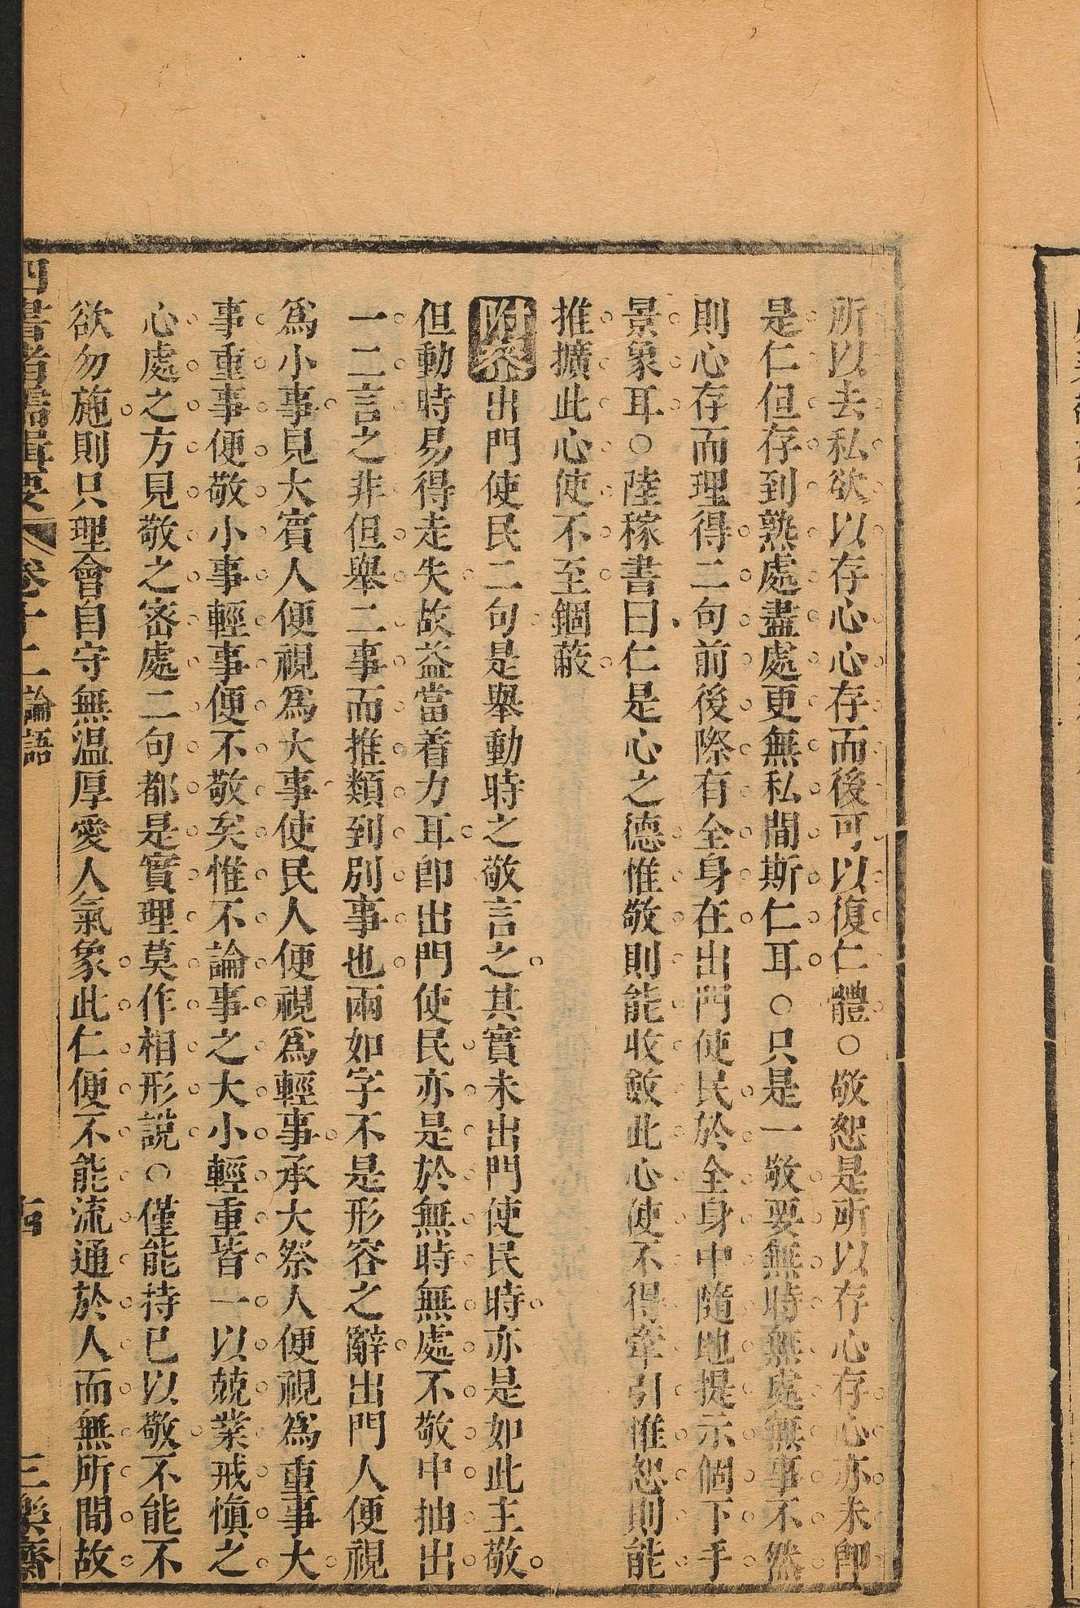 所以去私欲以存心心存而後可以復仁體○敬恕是所以存心存心亦未卽
是仁但存到熟處盡處更無私間斯仁耳○只是一敬要無時無處無事不然
則心存而理得二句前後際有全身在出門使民於全身中隨地提示個下手
景象耳○陸稼書曰仁是心之德惟敬則能收斂此心使不得牽引惟恕則能
推擴此心使不至錮蔽
附叅出門使民二句是舉動時之敬言之其實未出門使民時亦是如此主敬
但動時易得走失故益當着力耳卽出門使民亦是於無時無處不敬中抽出
一二言之非但舉二事而推類到別事也兩如字不是形容之辭出門人便視
爲小事見大賓人便視爲大事使民人便視爲輕事承大祭人便視爲重事大
事重事便敬小事輕事便不敬矣惟不論事之大小輕重皆一以兢業戒愼之
心處之方見敬之密處二句都是實理莫作相形說○僅能持己以敬不能不
欲勿施則只理會自守無温厚愛人氣象此仁便不能流通於人而無所間故
四書 輯要 卷十二論語 三樂齋